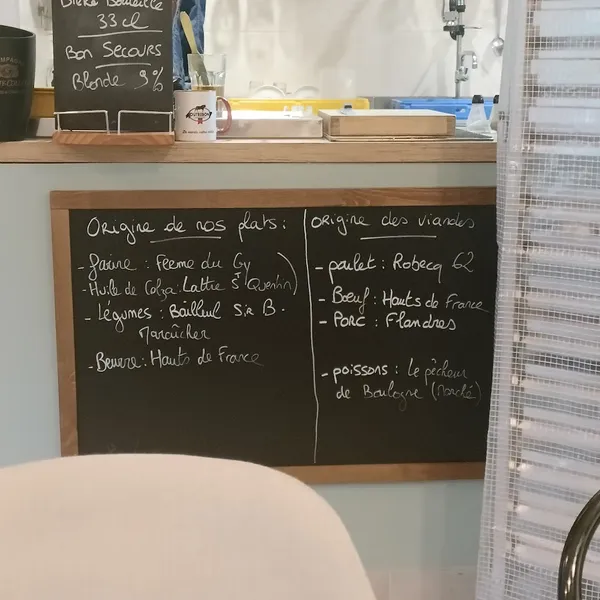 Bière Bouteille
33 cl
Bon Secours
Blonde 9%
Origine de nos plats :
- farine : Ferme du Gy
- Huile de Colza : Lattre St Quentin)
- Légumes : Bailleul Sir B.
Maraîcher
- Beurre : Hauts de France
Origine des viandes
- poulet : Robecq 62
- Boeuf : Hauts de France
- Porc : Flandres
- poissons : Le pêcheur
de Boulogne (Marché)